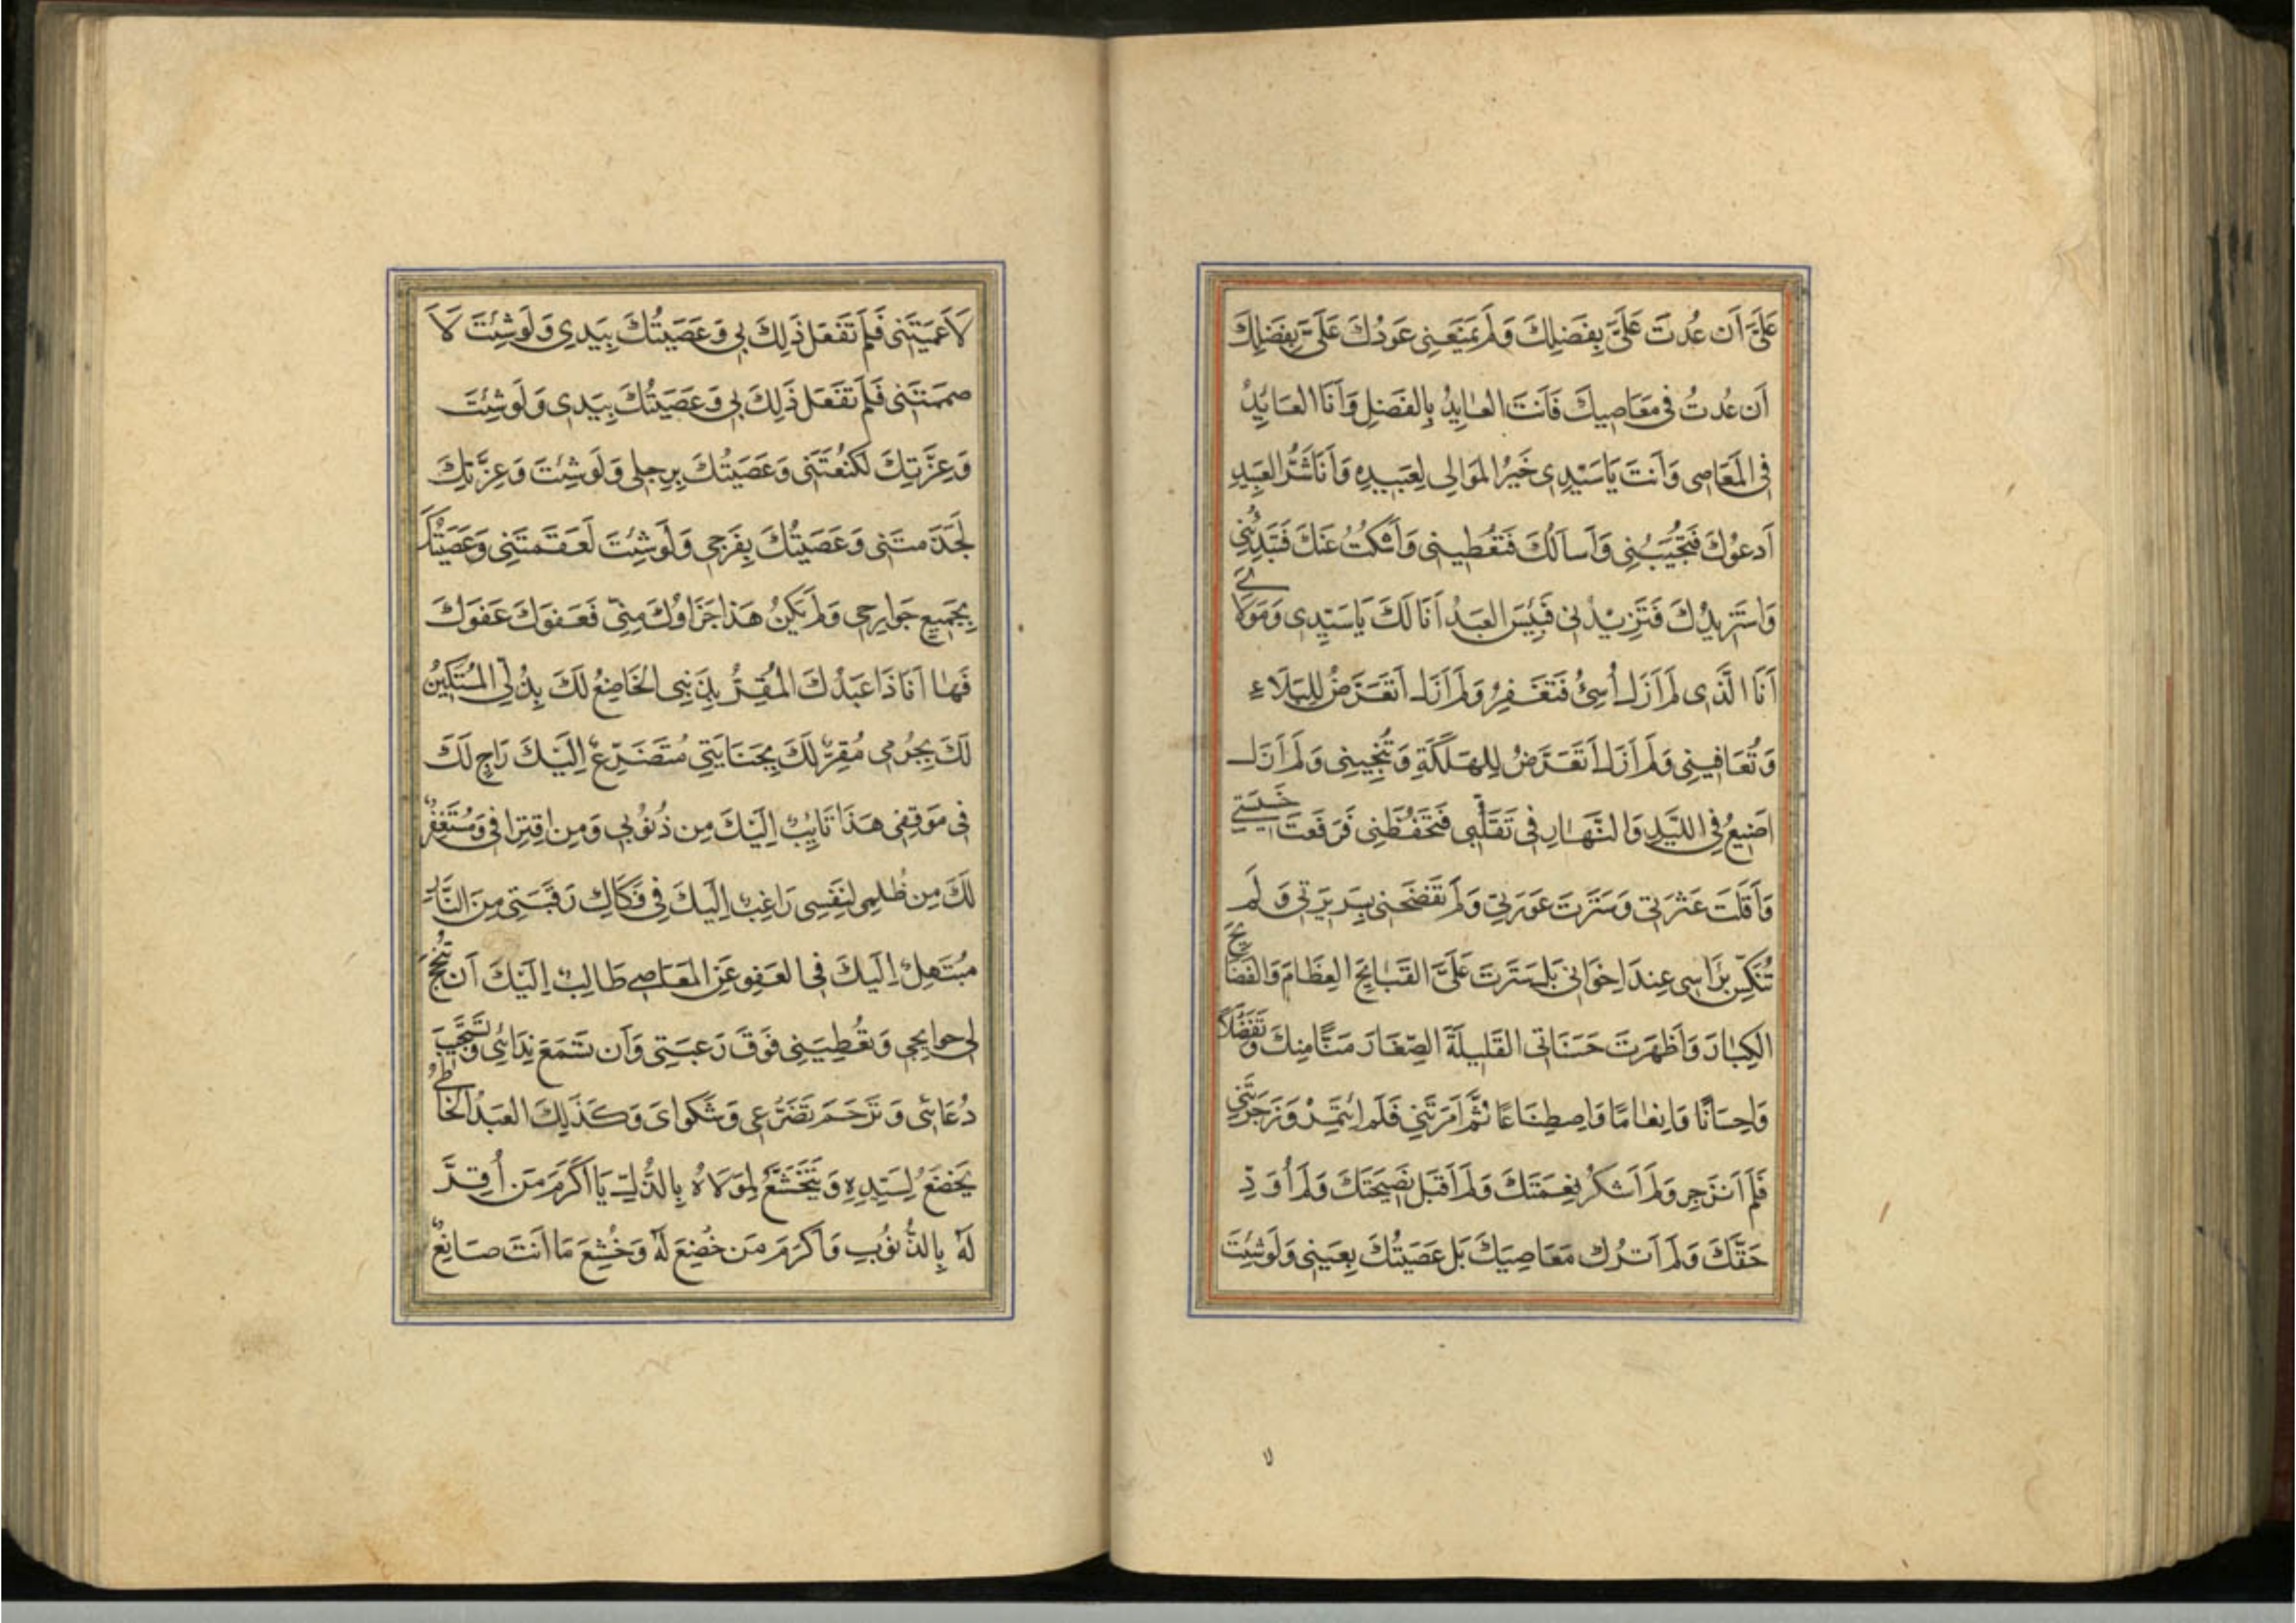 عَلَىَّ اَن عُدتَ عَلَىَّ بِفَضلِكَ وَلَم يَمنَعنِى عَودُكَ عَلَىَّ بِفَضلِكَ
اَن عُدتُ فى مَعَاصِيكَ فَاَنتَ العٰايِدُ بِالفَضلِ وَاَنَا العَايِدُ
فِى المَعَاصِى وَاَنتَ يَا سَيِّدِى خَيرُ المَوَالِى لِعَبِيدِهِ وَاَنَا شَرُّ العَبِيدِ
اَدعُوكَ فَتُجِيبُنِى وَاَساَلُكَ فَتُعطِينِى وَاَسكُتُ عَنكَ فَتَبتَدِئُنِى
وَاستَزِيدُكَ فَتَزِيدُنِى فَبِئسَ العَبدُ اَنَا لَكَ يَا سَيِّدِى وَمَولَاىَ
اَنَا الَّذِى لَم اَزَل اُسِئُ فَتَغفِرُ وَلَم اَزَل اَتَعَرَّضُ لِلبَلَاءِ
وَتُعَافِينِى وَلَم اَزَل اَتَعَرَّضُ لِلهَلَكَةِ وَتُنجِينِى وَلَم اَزَل
اُضِيعُ فِى اللَّيلِ وَالنَّهٰارِ فِى تَقَلُّبِى فَتَحفَظُنِى فَرَفَعتَ خَسِيسَتِى
وَاَقَلتَ عَثرَتِى وَسَتَرتَ عَورَتِى وَلَم تَفضَحنِى بِسَرِيرَتِى وَلَم
تُنَكِّس بِرَاسِى عِندَ اِخوَانِى بَل سَتَرتَ عَلَىَّ القَبٰايِحَ العِظَامَ وَالفَضَايِحَ
الكِبٰارَ وَاَظهَرتَ حَسَنَاتِى القَلِيلَةَ الصِّغَارَ مَنًّا مِنكَ وَتَفَضُّلًا
وَاِحسَانًا وَاِنعٰامًا وَاصطِنَاعًا ثُمَّ اَمَرتَنِى فَلَم ائتَمِر وَزَجَرتَنِى
فَلَم اَنزَجِر وَلَم اَشكُر نِعمَتَكَ وَلَم اَقبَل نَصِيحَتَكَ وَلَم اُوَدِّ
حَقَّكَ وَلَم اَترُك مَعَاصِيَكَ بَل عَصَيتُكَ بِعَينِى وَلَو شِئتَ
لَاَعمَيتَنِى فَلَم تَفعَل ذَلِكَ بِى وَعَصَيتُكَ بِيَدِى وَلَو شِئتَ لَا
صمَمتَنِى فَلَم تَفعَل ذَلِكَ بِى وَعَصَيتُكَ بِيَدِى وَلَو شِئتَ
وَعِزَّتِكَ لَكَنَعتَنِى وَعَصَيتُكَ بِرِجلِى وَلَو شِئتَ وَعِزَّتِكَ
لَجَذَمتَنِى وَعَصَيتُكَ بِفَرجِى وَلَو شِئتَ لَعَقَمتَنِى وَعَصَيتُكَ
بِجَمِيعِ جَوَارِحِى وَلَم يَكُن هَذَا جَزَاوُكَ مِنِّى فَعَفوَكَ عَفوَكَ
فَهٰا اَنَا ذَا عَبدُكَ المُقِرُّ بِذَنبِى الخَاضِعُ لَكَ بِذُلِّى المُستَكِينُ
لَكَ بِجُرمِى مُقِرٌّ لَكَ بِجِنَايَتِى مُتَضَرِّعٌ اِلَيكَ رَاجٍ لَكَ
فِى مَوقِفِى هَذَا تَايِبٌ اِلَيكَ مِن ذُنُوبِى وَمِن اقتِرَافِى وَمُستَغفِرٌ
لَكَ مِن ظُلمِى لِنَفسِى رَاغِبٌ اِلَيكَ فِى فَكَاكِ رَقَبَتِى مِنَ النَّارِ
مُبتَهِلٌ اِلَيكَ فِى العَفوِ عَنِ المَعَاصِى طَالِبٌ اِلَيكَ اَن تُنجِحَ
لِى حوايِجِى وَتُعطِيَنِى فَوقَ رَغبَتِى وَاَن تَسمَعَ نِدَائِى وَتَستَجِيبَ
دُعَائِى وَتَرحَمَ تَضَرُّعِى وَشَكوَاىَ وَكَذَلِكَ العَبدُ الخَاطِئُ
يَخضَعُ لِسَيِّدِهِ وَيَتَخَشَّعُ لِمَولَاهُ بِالذُّلِّ يَا اَكرَمَ مَن اُقِرَّ
لَهُ بِالذُّنُوبِ وَاَكرَمَ مَن خُضِعَ لَهُ وَخُشِعَ مَا اَنتَ صَانِعٌ
لا